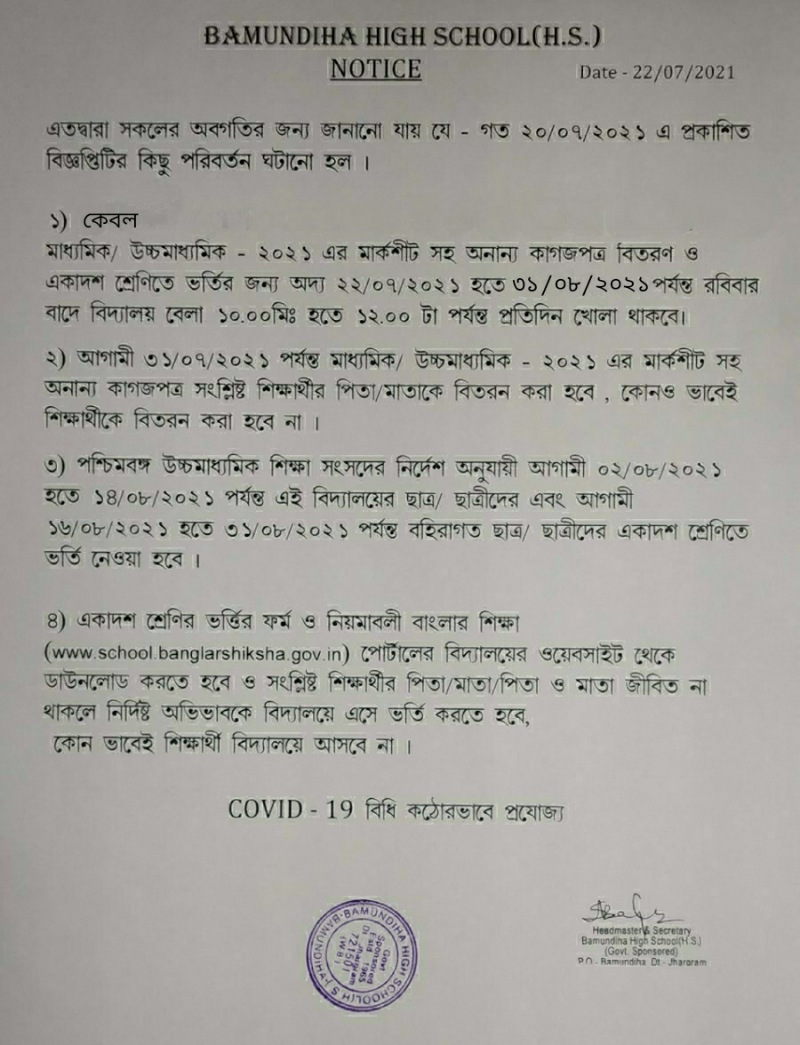 BAMUNDIHA HIGH SCHOOL(H.S.)
NOTICE
Date - 22/07/2021
এতদ্বারা সকলের অবগতির জন্য জানানো যায় যে - গত ২০/০৭/২০২১ এ প্রকাশিত
বিজ্ঞপ্তিটির কিছু পরিবর্তন ঘটানো হল ।
১) কেবল
মাধ্যমিক/ উচ্চমাধ্যমিক - ২০২১ এর মার্কশীট সহ অনান্য কাগজপত্র বিতরণ ও
একাদশ শ্রেণিতে ভর্তির জন্য অদ্য ২২/০৭/২০২১ হতে ৩১/০৮/২০২১পর্যন্ত রবিবার
বাদে বিদ্যালয় বেলা ১০.০০মিঃ হতে ১২.০০ টা পর্যন্ত প্রতিদিন খোলা থাকবে।
২) আগামী ৩১/০৭/২০২১ পর্যন্ত মাধ্যমিক/ উচ্চমাধ্যমিক - ২০২১ এর মার্কশীট সহ
অনান্য কাগজপত্র সংশ্লিষ্ট শিক্ষার্থীর পিতা/মাতাকে বিতরন করা হবে , কোনও ভাবেই
শিক্ষার্থীকে বিতরন করা হবে না ।
৩) পশ্চিমবঙ্গ উচ্চমাধ্যমিক শিক্ষা সংসদের নির্দেশ অনুযায়ী আগামী ০২/০৮/২০২১
হতে ১৪/০৮/২০২১ পর্যন্ত এই বিদ্যালয়ের ছাত্র/ ছাত্রীদের এবং আগামী
১৬/০৮/২০২১ হতে ৩১/০৮/২০২১ পর্যন্ত বহিরাগত ছাত্র/ ছাত্রীদের একাদশ শ্রেণিতে
ভর্তি নেওয়া হবে ।
৪) একাদশ শ্রেণির ভর্ত্তির ফর্ম ও নিয়মাবলী বাংলার শিক্ষা
(www.school.banglarshiksha.gov.in) পোর্টালের বিদ্যালয়ের ওয়েবসাইট থেকে
ডাউনলোড করতে হবে ও সংশ্লিষ্ট শিক্ষার্থীর পিতা/মাতা/পিতা ও মাতা জীবিত না
থাকলে নির্দিষ্ট অভিভাবকে বিদ্যালয়ে এসে ভর্তি করতে হবে,
কোন ভাবেই শিক্ষার্থী বিদ্যালয়ে আসবে না ।
COVID - 19 বিধি কঠোরভাবে প্রযোজ্য
Headmaster & Secretary
Bamundiha High School(H.S.)
(Govt. Sponsored)
P.O - Bamundiha Dt - Jhargram
BAMUNDIHA HIGH SCHOOL(H.S)
Govt
Sponsored
Estd 1965
721501
(W.B)